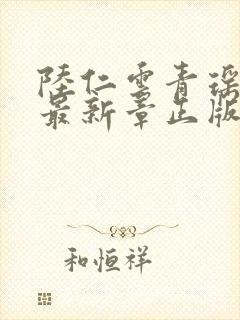 陸仁雲青瑶
最新章出版
和恒祥